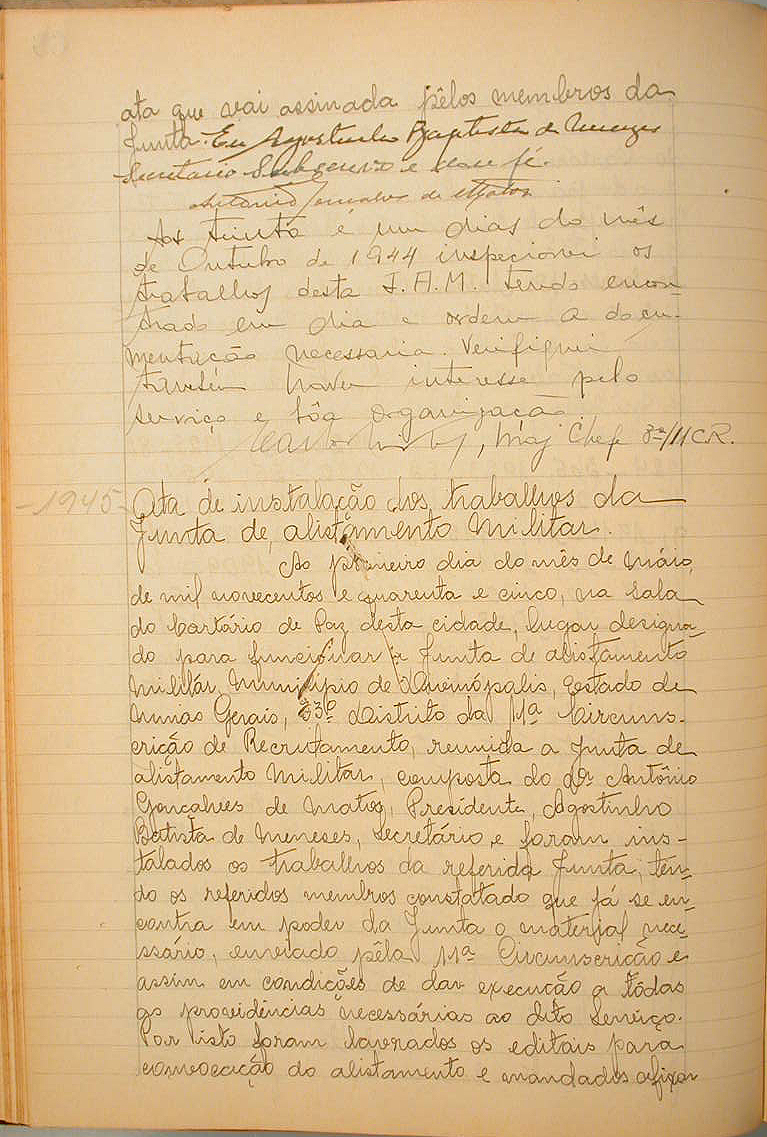 ata que vai assinada pêlos membros da
Junta. Eu Agostinho Baptista de Menezes
Secretario Subscrevo e dou fé.
Antonio Gonçalves de Mattos
Aos trinta é um dias do mês
de Outubro de 1944 inspecionei os
trabalhos desta J.A.M. tendo encon-
trado em dia e ordem a docu-
mentação necessaria. Verifiquei
também haver interesse pelo
serviço e bôa organização.
, Maj Chefe /11 C.R.
-1945- Ata de instalação dos trabalhos da
Junta de alistamento Militar.
Ao primeiro dia do mês de Máio,
de mil novecentos e quarenta e cinco, na sala
do Cartório de Paz desta cidade, lugar designa-
do para funcionar a Junta de alistamento
Militar, Município de, Estado de
Minas Gerais, 33º distrito da 11ª Circuns-
crição de Recrutamento, reunida a Junta de
alistamento Militar, composta do Dr. Antônio
Gonçalves de Matos, Presidente, Agostinho
Batista de Meneses, Secretário, e foram ins-
talados os trabalhos da referida Junta, ten-
do os referidos membros constatado que já se en-
contra em poder da Junta o material nece-
ssário, enviado pêla 11ª Circunscrição e
assim em condições de dar execução a tôdas
as providências necessárias ao dito Serviço.
Por isto foram lavrados os editais para
convocação do alistamento e mandados afixar